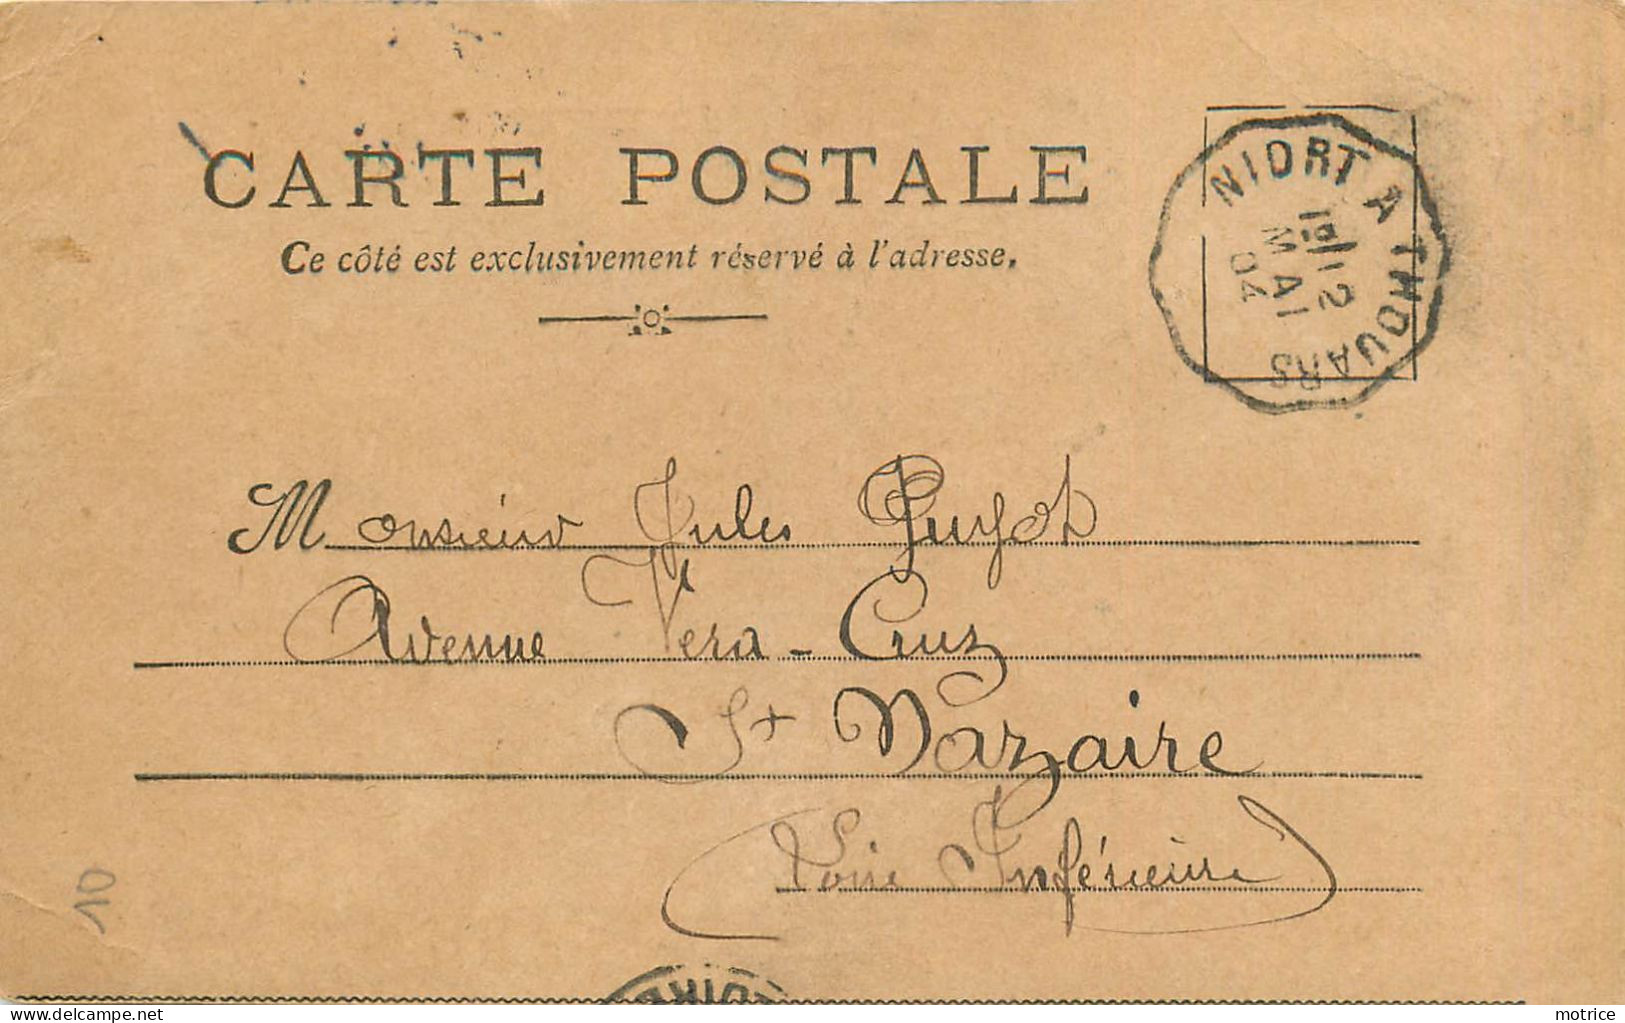 CARTE POSTALE
Ce côté est exclusivement réservé à l'adresse.
NIORT A THOUARS
12
MAI
04
Monsieur Jules Guyot
Avenue Vera-Cruz
St Nazaire
(Loire Inférieure)
10
OIRE
motrice